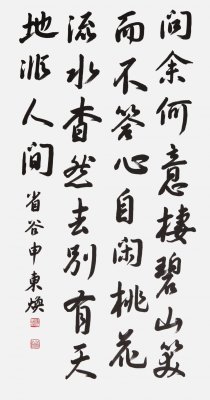 問余何意棲碧山笑
而不答心自閑桃花
流水杳然去別有天
地非人間 省谷申東煥